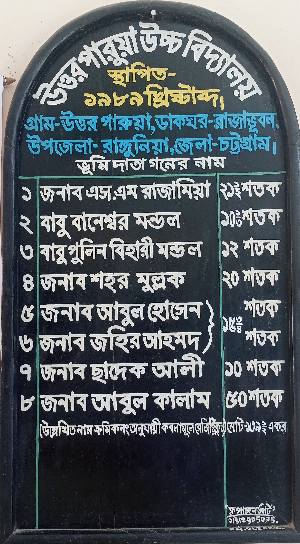 উত্তর পারুয়া উচ্চ বিদ্যালয়
স্থাপিত-
১৯৮৯ খ্রিষ্টাব্দ।
গ্রাম-উত্তর পারুয়া, ডাকঘর-রাজাভুবন,
উপজেলা-রাঙ্গুনিয়া, জেলা-চট্টগ্রাম।
ভূমি দাতা গনের নাম
১ জনাব এস.এম রাজামিয়া ২১½ শতক
২ বাবু বানেশ্বর মন্ডল ১০½ শতক
৩ বাবু পুলিন বিহারী মন্ডল ১২ শতক
৪ জনাব শহর মুল্লুক ২০ শতক
৫ জনাব আবুল হোসেন শতক
৬ জনাব জহির আহমদ শতক
৭ জনাব ছাদেক আলী ১০ শতক
৮ জনাব আবুল কালাম ৫০ শতক
উল্লেখিত নাম ক্রমিক নং অনুযায়ী মোট একর